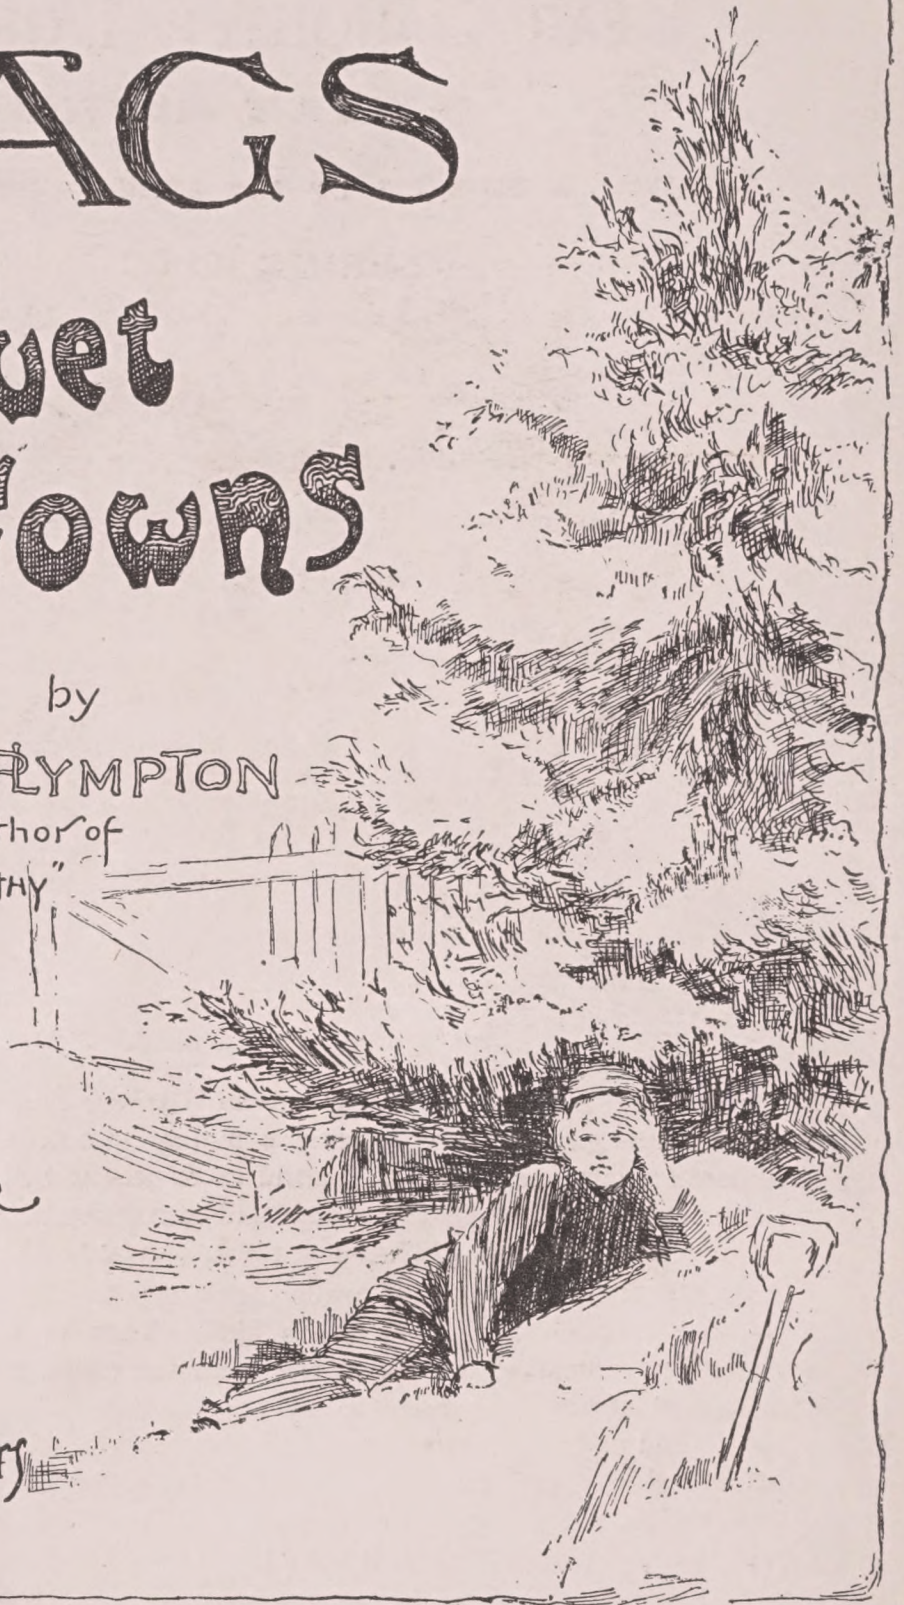 AGS
vet
owns
by
PLYMPTON
thor of
THY"
rs